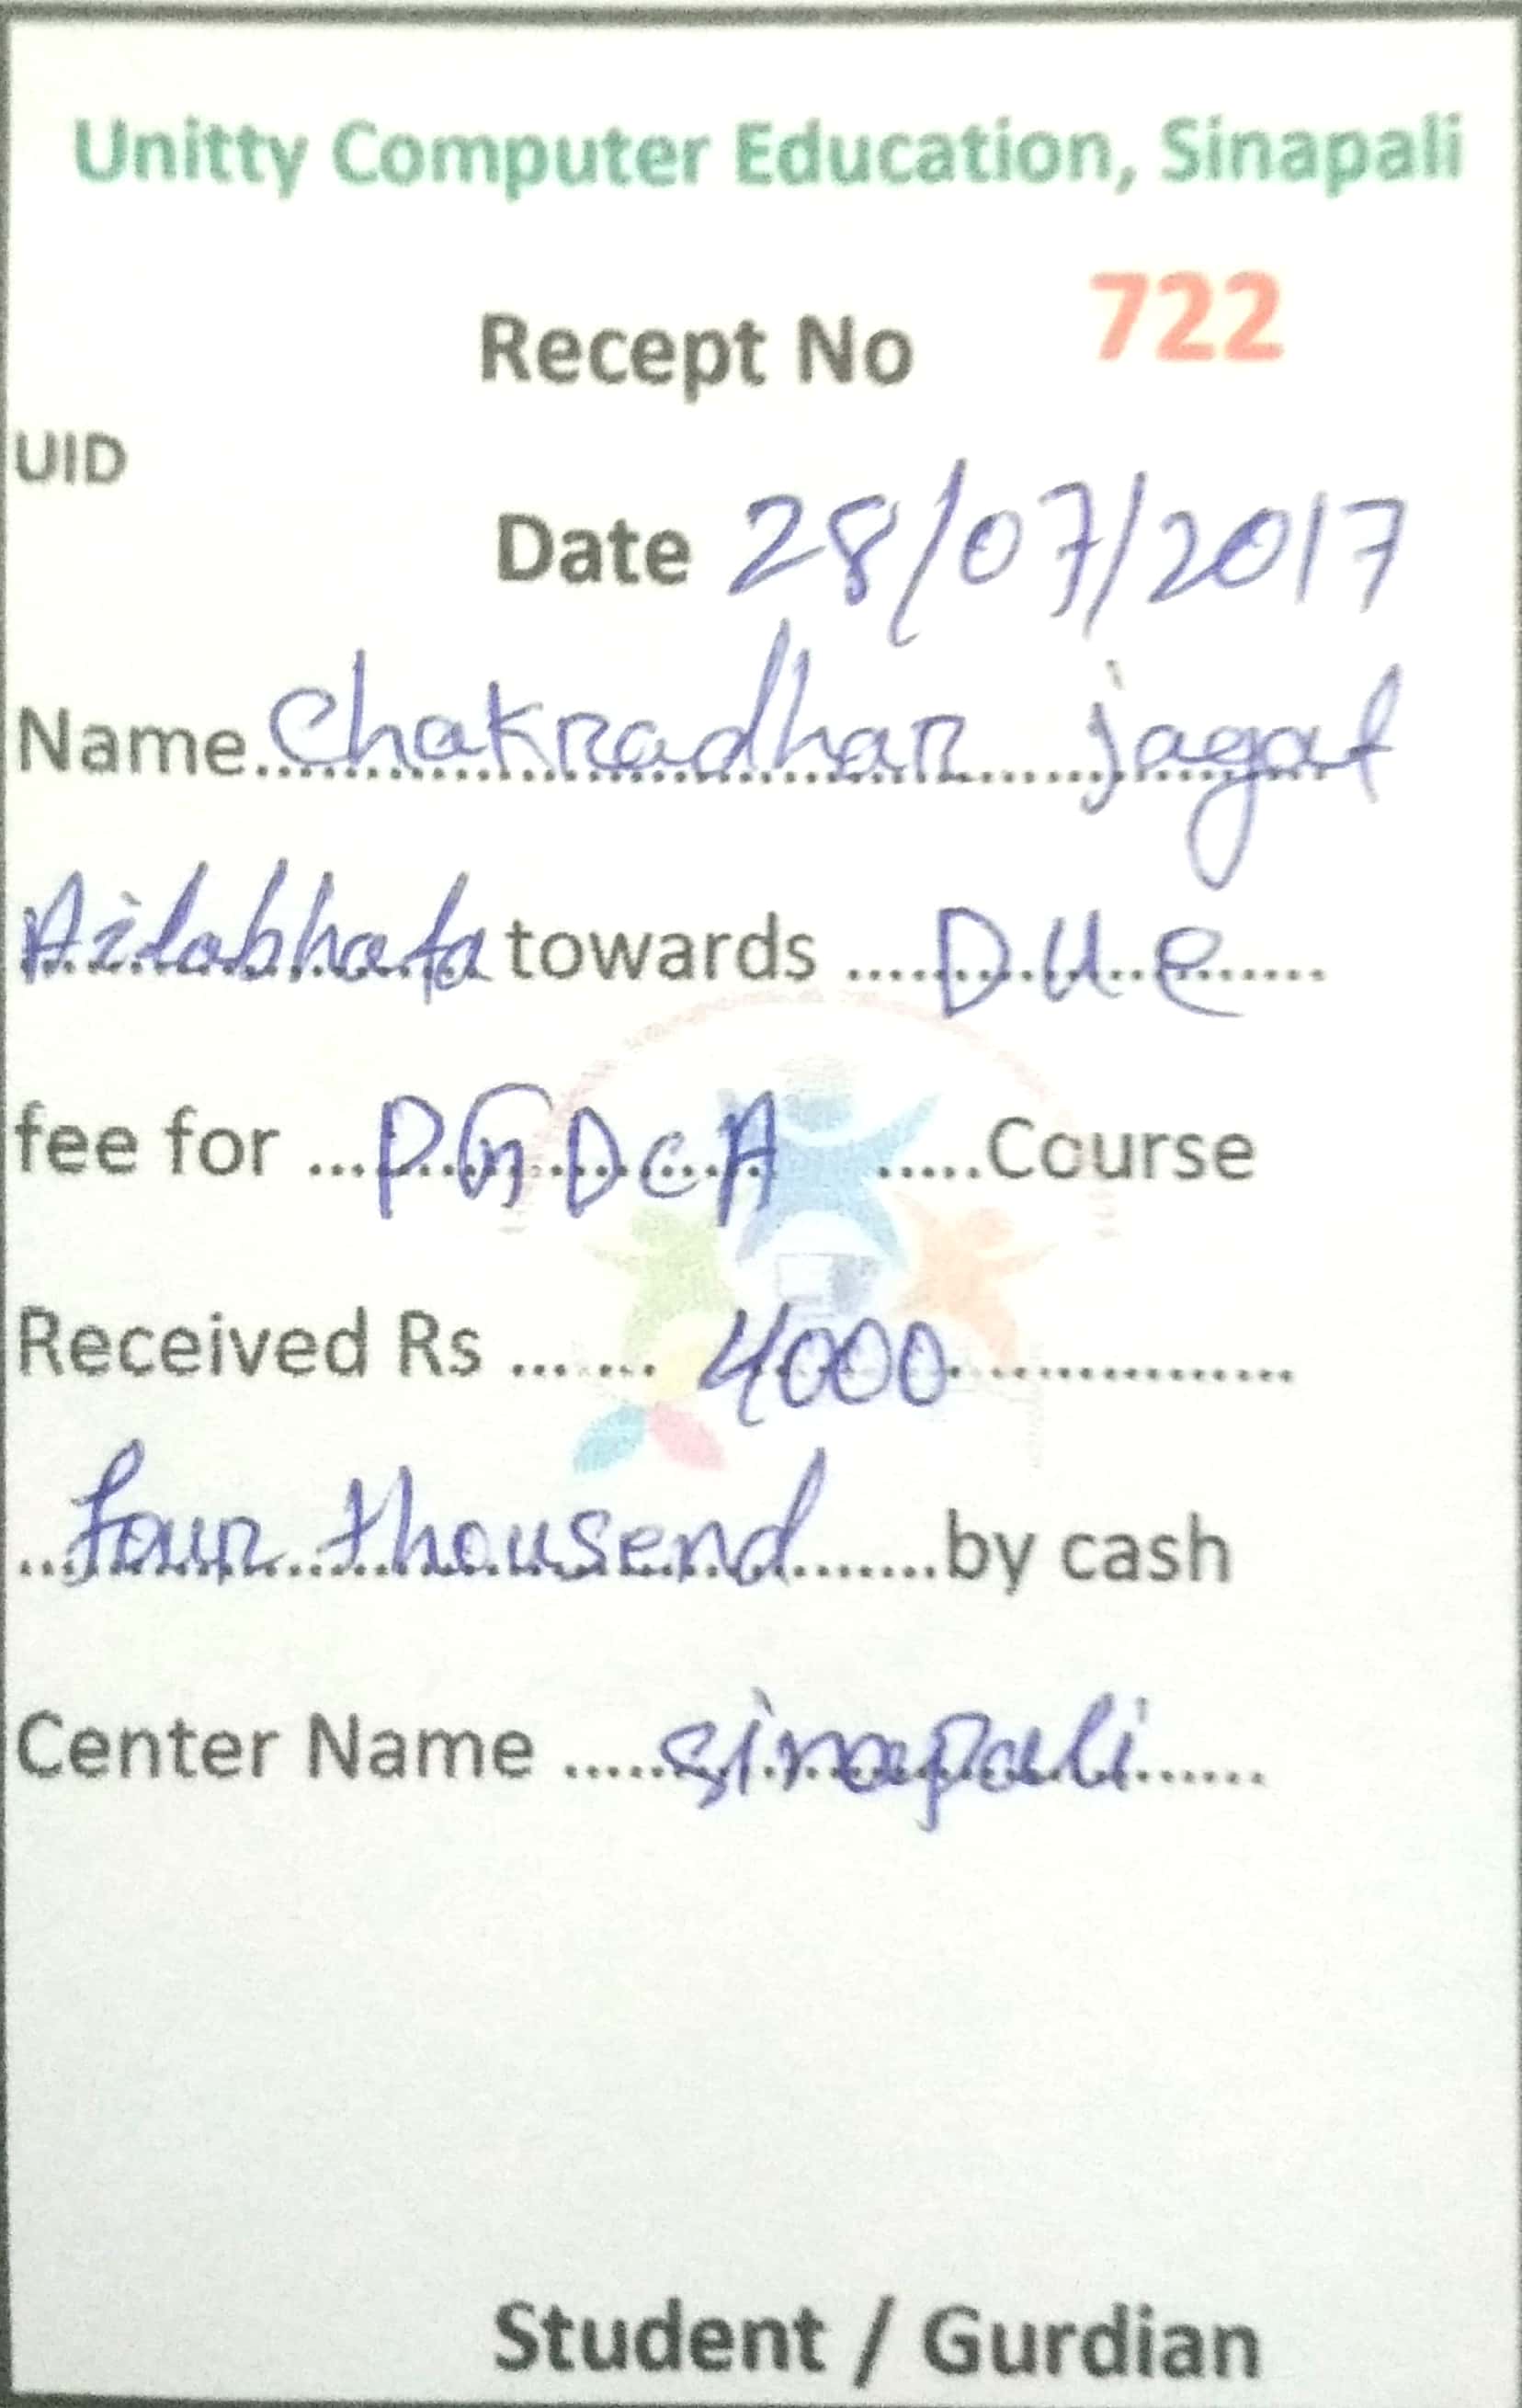 Unitty Computer Education, Sinapali
Recept No 722
UID
Date 28/07/2017
Name Chakradhar jagat
Ailabhata towards Due
fee for PGDCA Course
Received Rs 4000
four thousend by cash
Center Name sinapali
Student / Gurdian